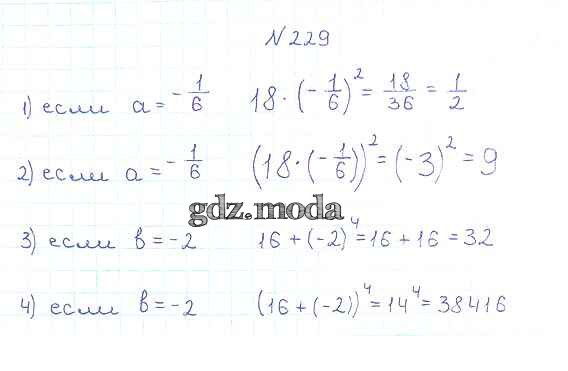 N229
1) если a = -1/6 18 · (-1/6)² = 18/36 = 1/2
2) если a = -1/6 (18 · (-1/6))² = (-3)² = 9
gdz.moda
3) если b = -2 16 + (-2)⁴ = 16 + 16 = 32
4) если b = -2 (16 + (-2))⁴ = 14⁴ = 38416